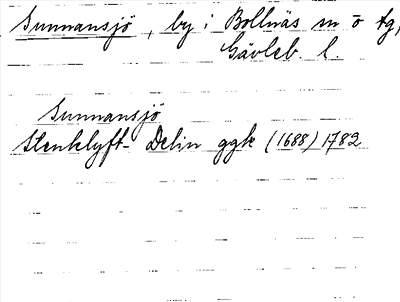 Sunnansjö, by i Bollnäs sn o tg,
Gävleb. l.
Sunnansjö
Stenklyft- Delin ggk (1688) 1782